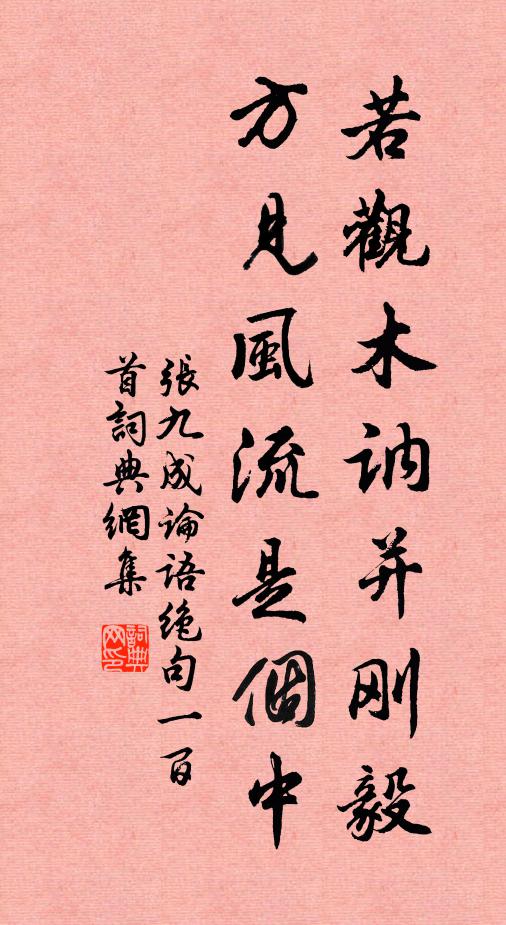 若觀木訥并刚毅
方見風流是個中
張九成論语绝句一百
首詞典網集
詞典网印